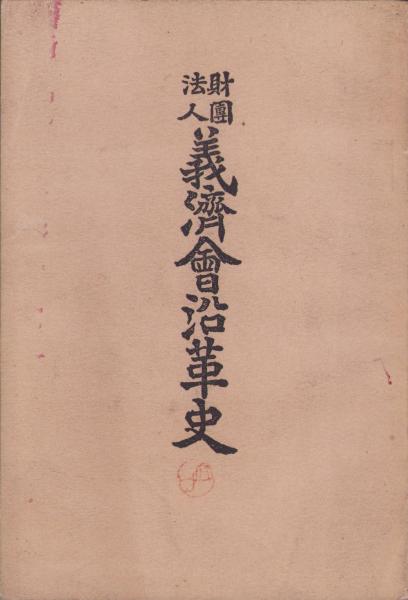 財團
法人
義濟會沿革史